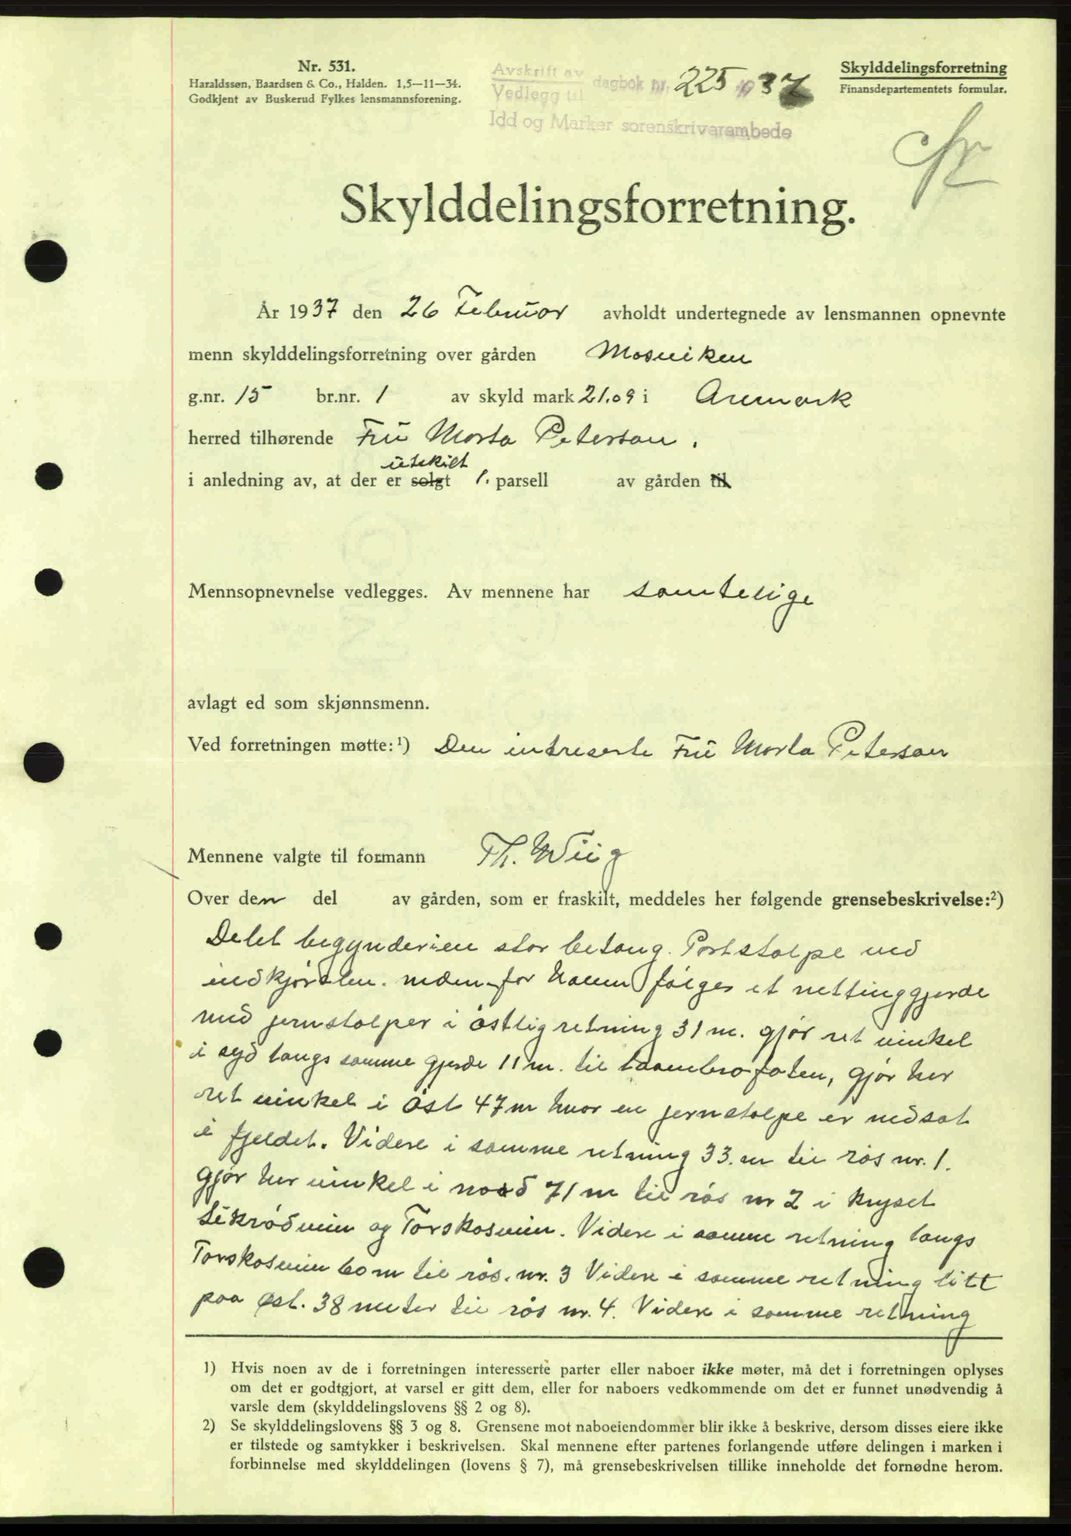 Nr. 531.
Haraldssøn, Baardsen & Co., Halden. 1,5—11—34.
Godkjent av Buskerud Fylkes lensmannsforening.
Avskrift av
Vedlegg til dagbok nr. 225 1937
Idd og Marker sorenskriverembede
Skylddelingsforretning
Finansdepartementets formular.
Skylddelingsforretning.
År 1937 den 26 Februar avholdt undertegnede av lensmannen opnevnte
menn skylddelingsforretning over gården Mosviken
g.nr. 15 br.nr. 1 av skyld mark 21.09 i Aremark
herred tilhørende Fru Marta Peterson.
utskilt
i anledning av, at der er solgt 1. parsell av gården til
Mennsopnevnelse vedlegges. Av mennene har samtelige
avlagt ed som skjønnsmenn.
Ved forretningen møtte:¹) Den intreserte Fru Marta Peterson
Mennene valgte til formann Th. Wiig
Over den del av gården, som er fraskilt, meddeles her følgende grensebeskrivelse:²)
Delet begynder i en stor betong. Portstolpe ved
indkjørslen. nedenfor følges et nettinggjerde
med jernstolper i østlig retning 31 m. gjør ret vinkel
i syd langs samme gjerde 11 m. til gjør her
ret vinkel i øst 47 m hvor en jernstolpe er nedsat
i fjeldet. Videre i samme retning 33. m til røs nr. 1.
gjør her vinkel i nord 71 m til røs nr 2 i kryset
og Torskosveien. Videre i samme retning langs
Torskosveien 60 m til røs. nr. 3 Videre i samme retning litt
paa øst. 38 meter til røs nr. 4. Videre i samme retning
1) Hvis noen av de i forretningen interesserte parter eller naboer ikke møter, må det i forretningen oplyses
om det er godtgjort, at varsel er gitt dem, eller for naboers vedkommende om det er funnet unødvendig å
varsle dem (skylddelingslovens §§ 2 og 8).
2) Se skylddelingslovens §§ 3 og 8. Grensene mot naboeiendommer blir ikke å beskrive, dersom disses eiere ikke
er tilstede og samtykker i beskrivelsen. Skal mennene efter partenes forlangende utføre delingen i marken i
forbinnelse med skylddelingen (lovens § 7), må grensebeskrivelsen tillike inneholde det fornødne herom.